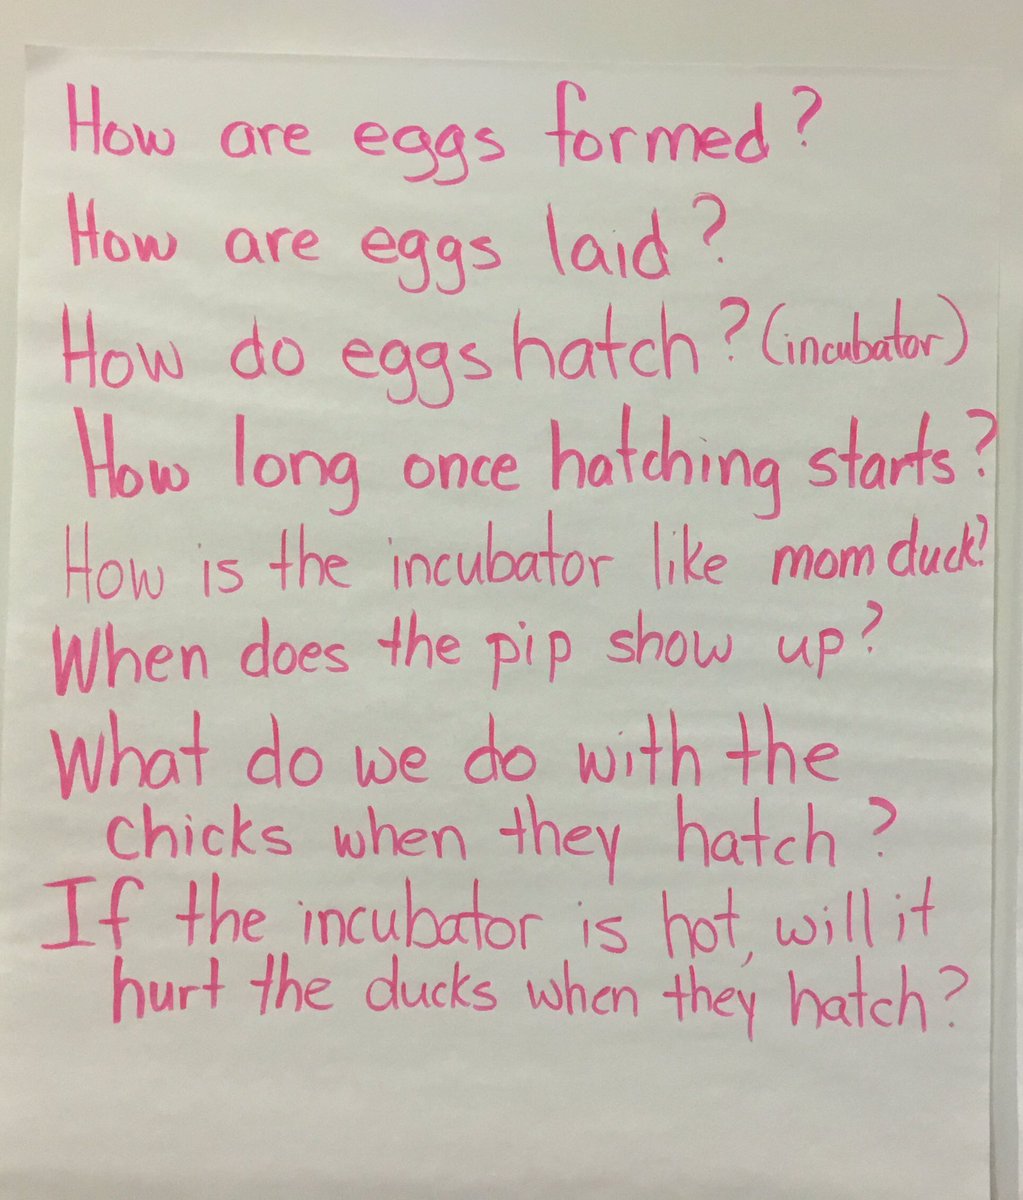 How are eggs formed?
How are eggs laid?
How do eggs hatch? (incubator)
How long once hatching starts?
How is the incubator like mom duck?
When does the pip show up?
What do we do with the
chicks when they hatch?
If the incubator is hot, will it
hurt the ducks when they hatch?